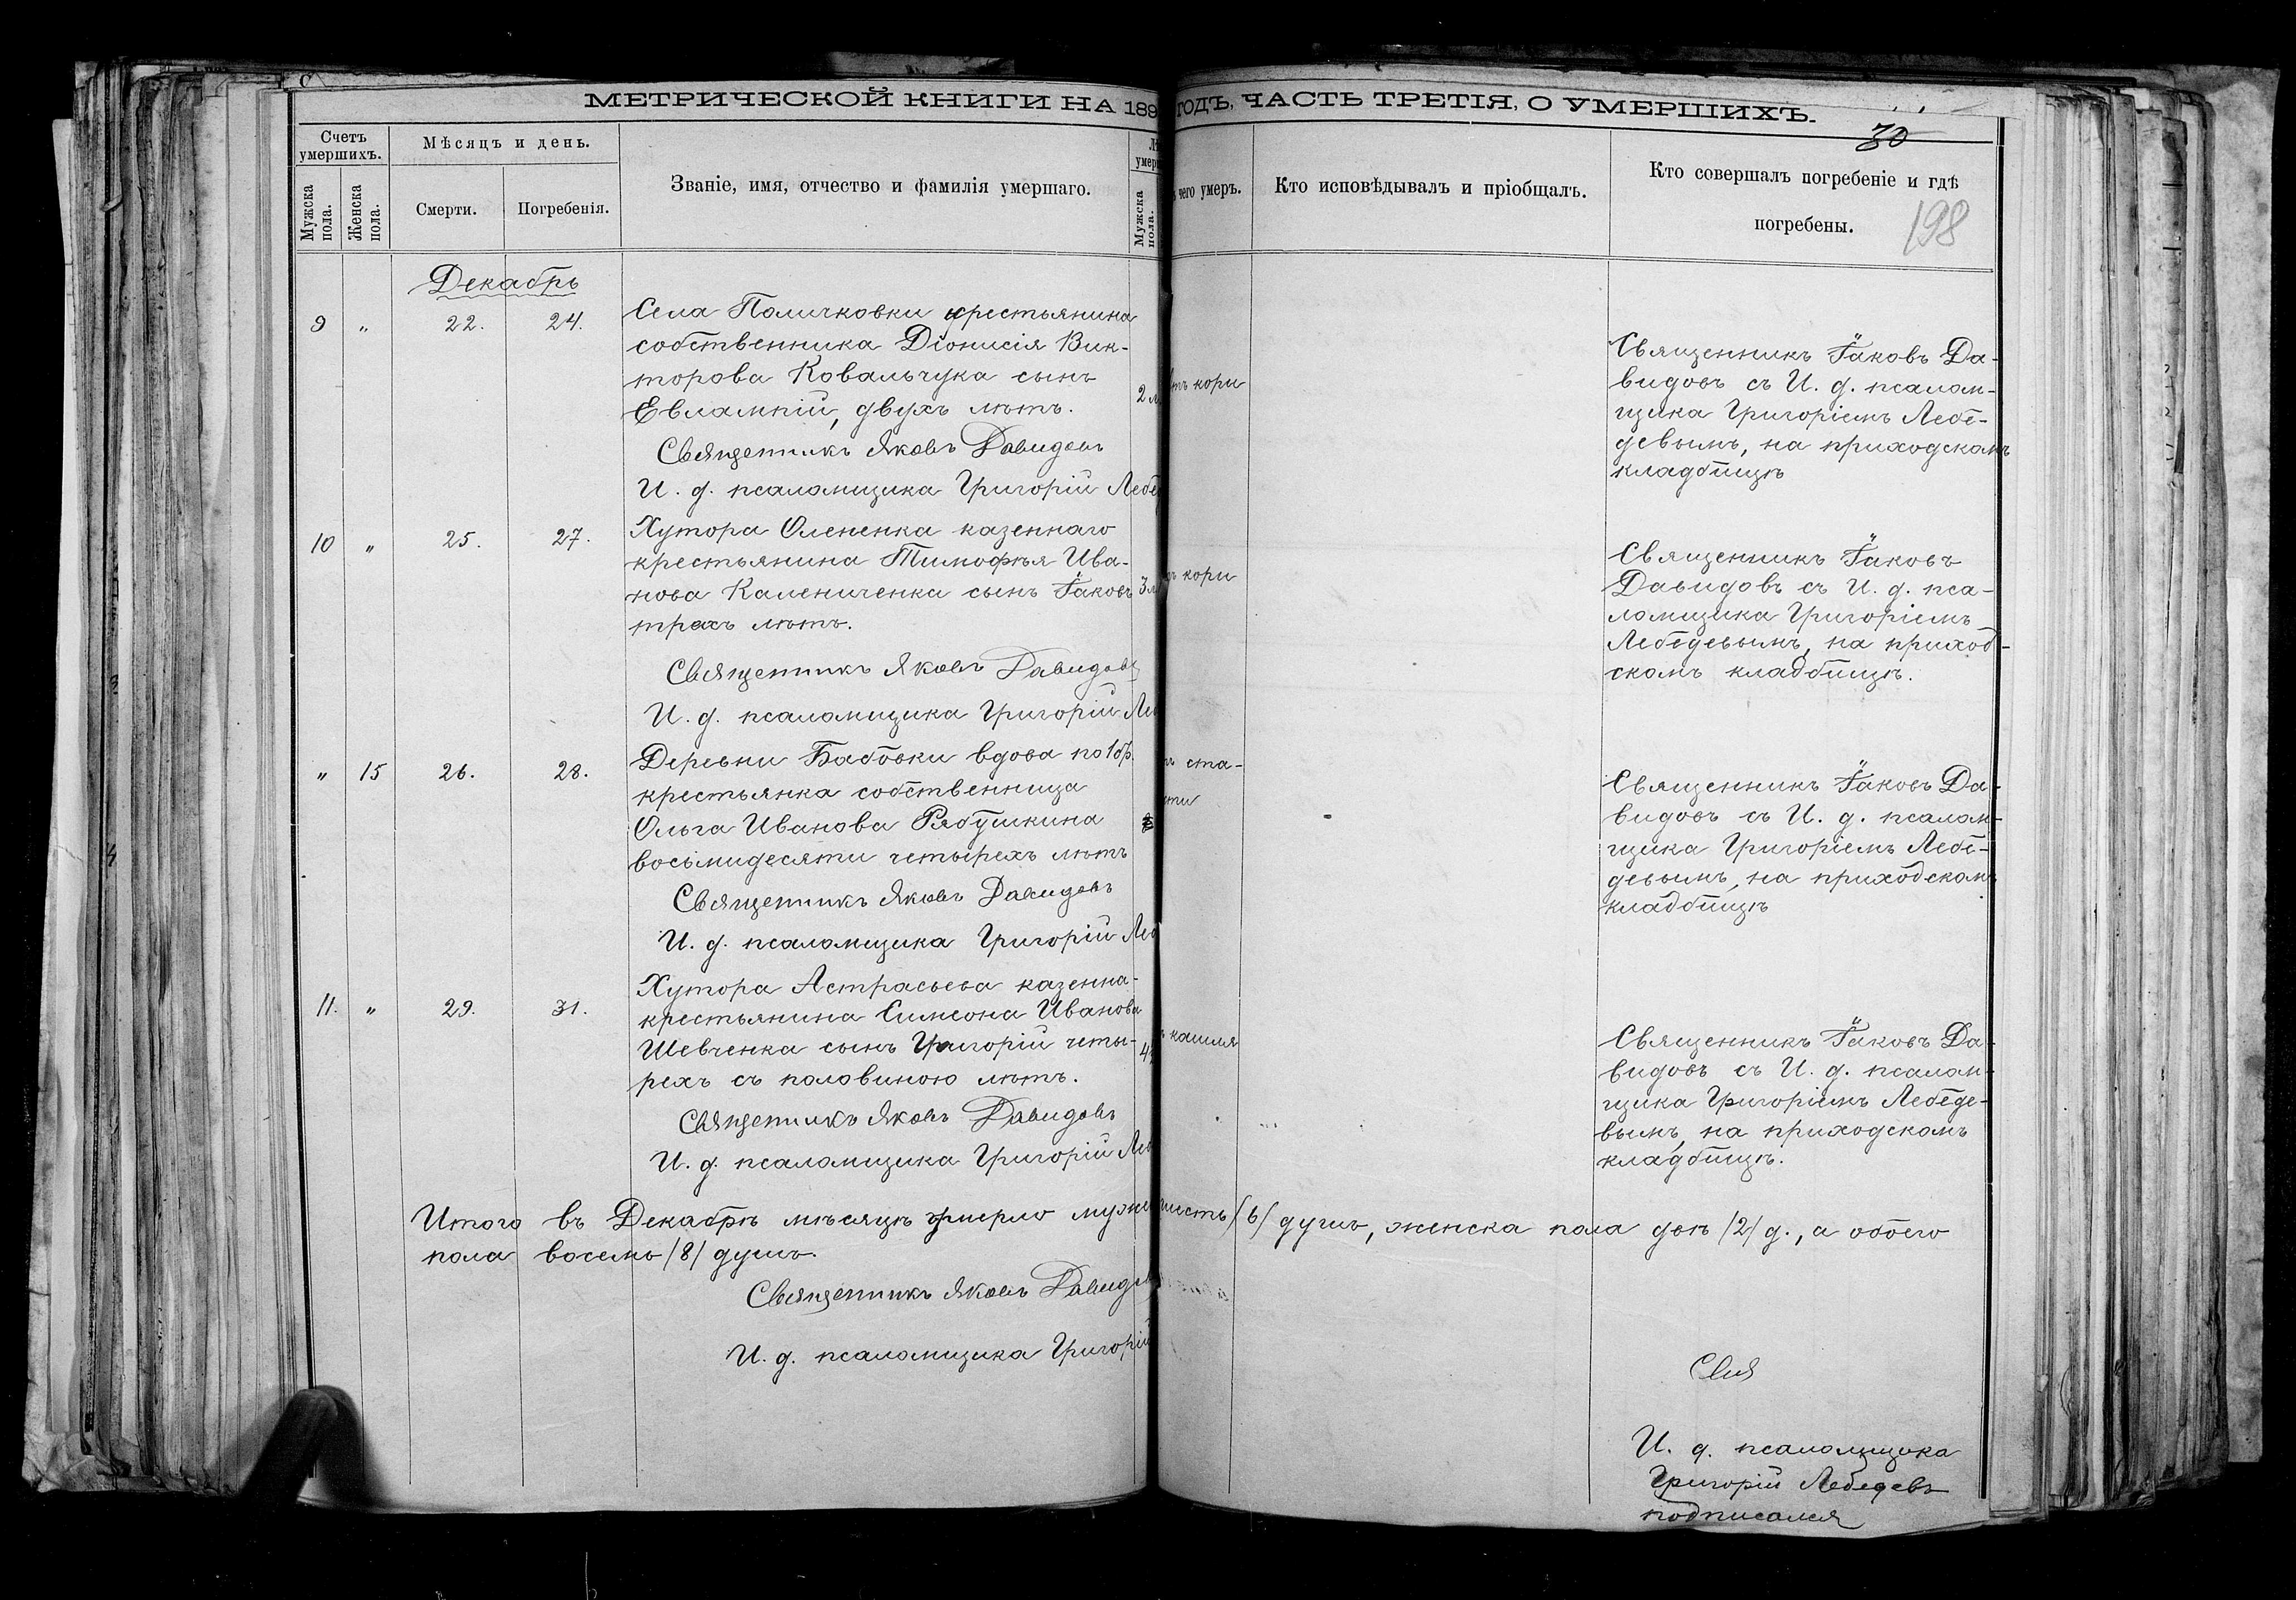 МЕТРИЧЕСКОЙ КНИГИ НА 189 ГОДЪ, ЧАСТЬ ТРЕТІЯ, О УМЕРШИХЪ.
30
198
Счетъ умершихъ.
Мужска пола.
Женска пола.
Мѣсяцъ и день.
Смерти.
Погребенія.
Званіе, имя, отчество и фамилія умершаго.
Мужска пола.
чего умеръ.
Кто исповѣдывалъ и пріобщалъ.
Кто совершалъ погребеніе и гдѣ
погребены.
Декабрь
9 " 22. 24.
Села Поличковки крестьянина
собственника Діонисія Вик-
торова Ковальчука сынъ
Евлампій, двухъ лѣтъ.
Священникъ Яковъ Давидовъ
И. д. псаломщика Григорій Лебе
2
кори
Священникъ Іаковъ Да-
видовъ съ И. д. псалом-
щика Григоріемъ Лебе-
девымъ, на приходскомъ
кладбищѣ
10 " 25. 27.
Хутора Олененка казеннаго
крестьянина Тимофѣя Ива-
нова Калениченка сынъ Іаковъ
трехъ лѣтъ.
Священникъ Яковъ Давидовъ
И. д. псаломщика Григорій Ле
3
кори
Священникъ Іаковъ
Давидовъ съ И. д. пса-
ломщика Григоріемъ
Лебедевымъ, на приход-
скомъ кладбищѣ.
" 15 26. 28.
Деревни Бабовки вдова по 1 бр.
крестьянка собственница
Ольга Иванова Рябушкина
восьмидесяти четырехъ лѣтъ
Священникъ Яковъ Давидовъ
И. д. псаломщика Григорій Леб
ста-
сти
Священникъ Іаковъ Да-
видовъ съ И. д. псалом-
щика Григоріемъ Лебе-
девымъ, на приходскомъ
кладбищѣ
11. " 29. 31.
Хутора Астрасьева казенна-
крестьянина Симеона Иванова
Шевченка сынъ Григорій четы-
рехъ съ половиною лѣтъ.
Священникъ Яковъ Давидовъ
И. д. псаломщика Григорій Ле
4
кашля
Священникъ Іаковъ Да-
видовъ съ И. д. псалом-
щика Григоріемъ Лебеде-
вымъ, на приходскомъ
кладбищѣ.
Итого въ Декабрѣ мѣсяцѣ умерло муже шесть /6/ душъ, женска пола двѣ /2/ д., а обоего
пола восемь /8/ душъ.
Священникъ Яковъ Давидов
И. д. псаломщика Григорій
Свя
И. д. псаломщика
Григорій Лебедевъ
подписался